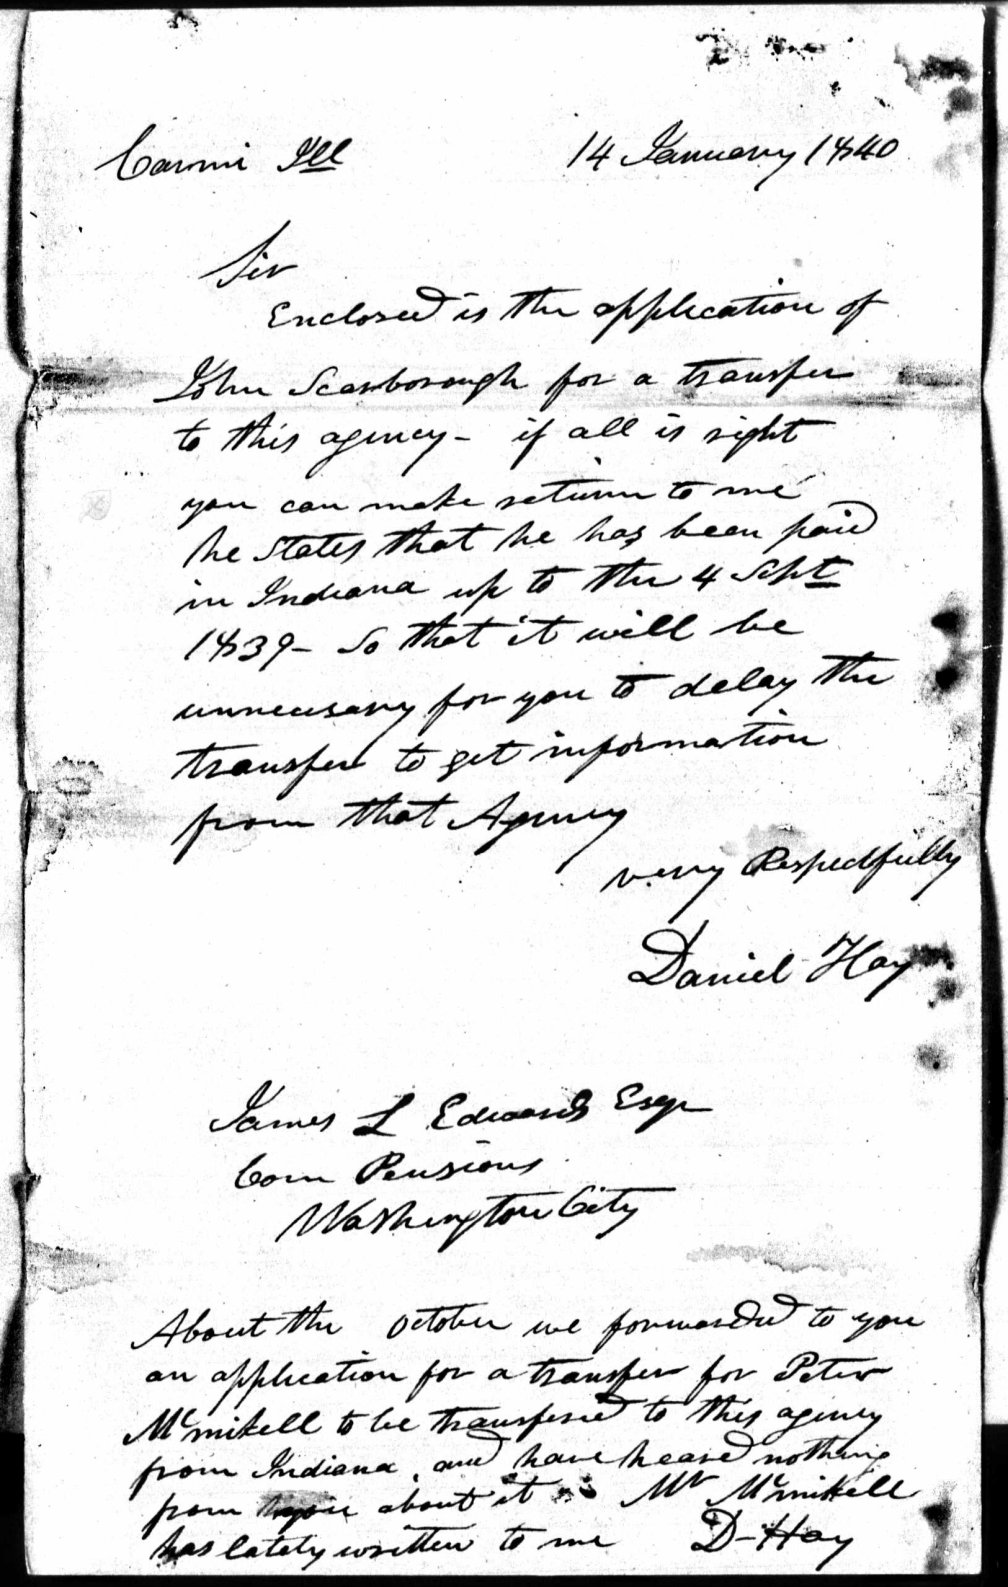 Carmi Ill 14 January 1840
Sir
Enclosed is the application of
John Scarborough for a transfer
to this agency - if all is right
you can make return to me
he States that he has been paid
in Indiana up to the 4 Sept
1839 - So that it will be
unnecessary for you to delay the
transfer to get information
from that Agency
very Respectfully
Daniel Hay
James L Edwards Esqr
Com Pensions
Washington City
About the October we forwarded to you
an application for a transfer for Peter
Mcmikell to be transfered to this agency
from Indiana, and have heard nothing
from you about it Mr Mcmikell
has lately written to me D- Hay